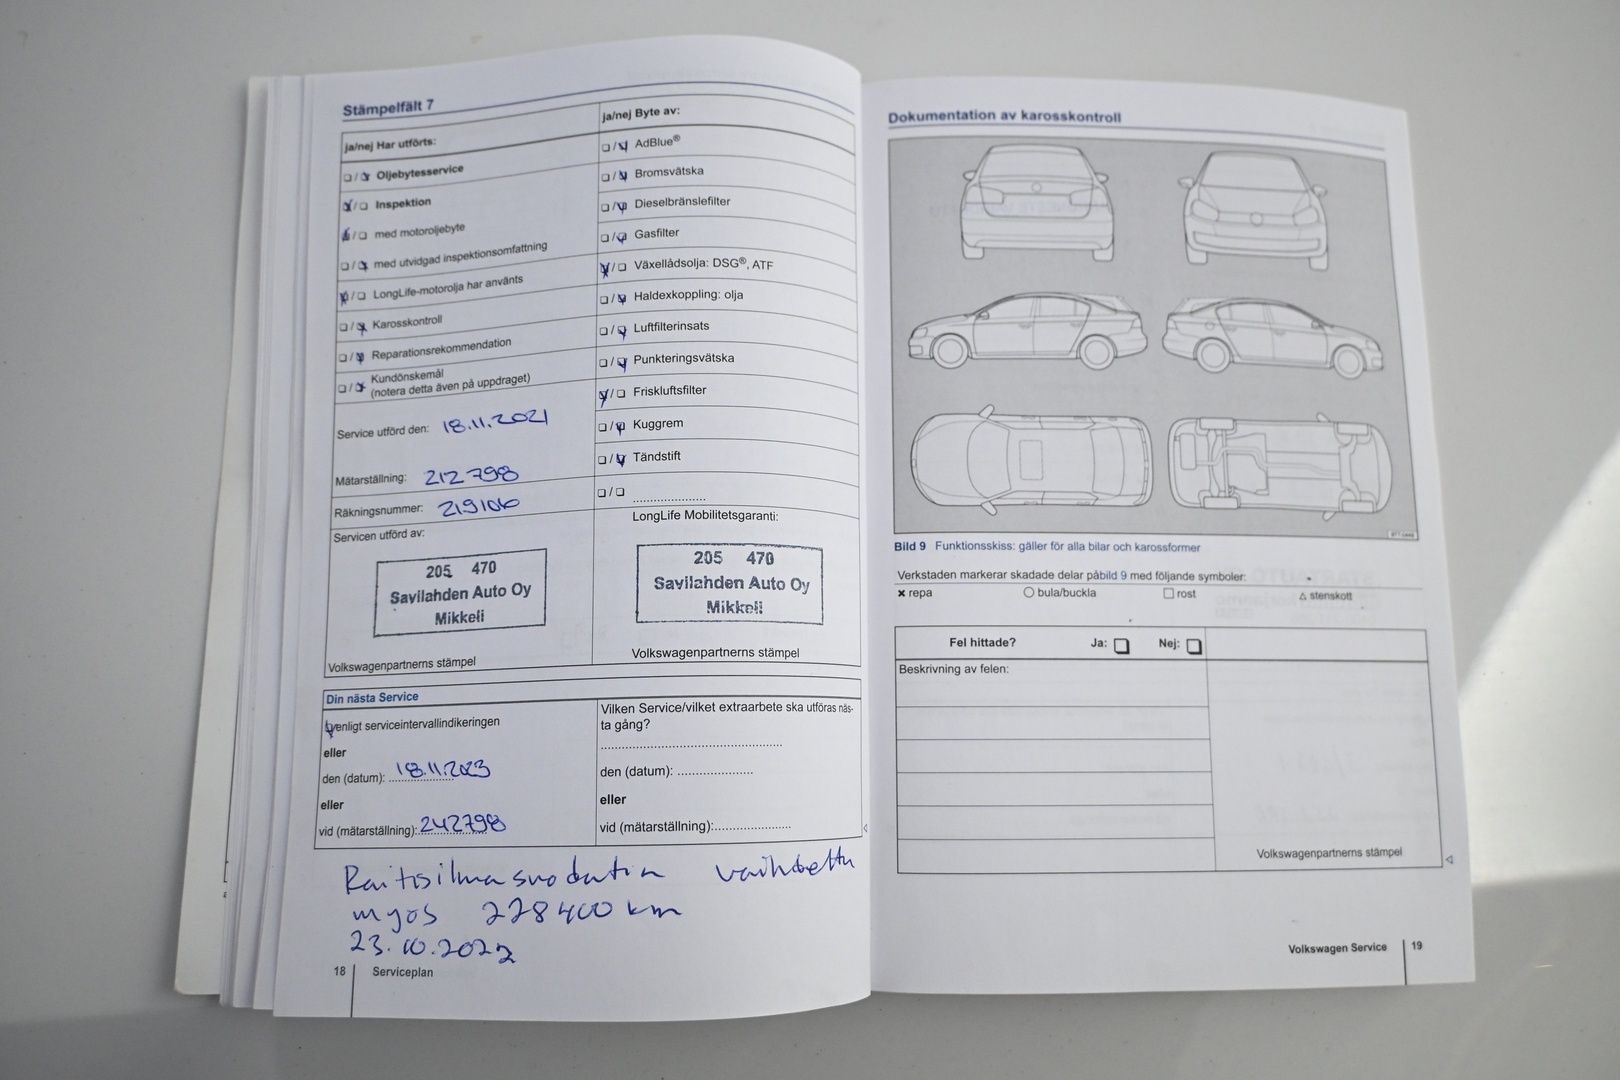 Stämpelfält 7
ja/nej Har utförts:
❏/❏ Oljebytesservice
❏/❏ Inspektion
❏/❏ med motoroljebyte
❏/❏ med utvidgad inspektionsomfattning
❏/❏ LongLife-motorolja har använts
❏/❏ Karosskontroll
❏/❏ Reparationsrekommendation
❏/❏ Kundönskemål
(notera detta även på uppdraget)
Service utförd den: 18.11.2021
Mätarställning: 212798
Räkningsnummer: 219106
Servicen utförd av:
205 470
Savilahden Auto Oy
Mikkeli
Volkswagenpartnerns stämpel
ja/nej Byte av:
❏/❏ AdBlue®
❏/❏ Bromsvätska
❏/❏ Dieselbränslefilter
❏/❏ Gasfilter
❏/❏ Växellådsolja: DSG®, ATF
❏/❏ Haldexkoppling: olja
❏/❏ Luftfilterinsats
❏/❏ Punkteringsvätska
❏/❏ Friskluftsfilter
❏/❏ Kuggrem
❏/❏ Tändstift
❏/❏ ......................
LongLife Mobilitetsgaranti:
205 470
Savilahden Auto Oy
Mikkeli
Volkswagenpartnerns stämpel
Din nästa Service
enligt serviceintervallindikeringen
eller
den (datum): 18.11.2023
eller
vid (mätarställning): 242798
Vilken Service/vilket extraarbete ska utföras näs-
ta gång?
den (datum): ......................
eller
vid (mätarställning):......................
Raitisilmasuodatin vaihdettu
myös 228400 km
23.10.2022
18 Serviceplan
Dokumentation av karosskontroll
Bild 9 Funktionsskiss: gäller för alla bilar och karossformer
Verkstaden markerar skadade delar påbild 9 med följande symboler:
× repa ○ bula/buckla □ rost △ stenskott
Fel hittade? Ja: ❏ Nej: ❏
Beskrivning av felen:
Volkswagenpartnerns stämpel
Volkswagen Service 19